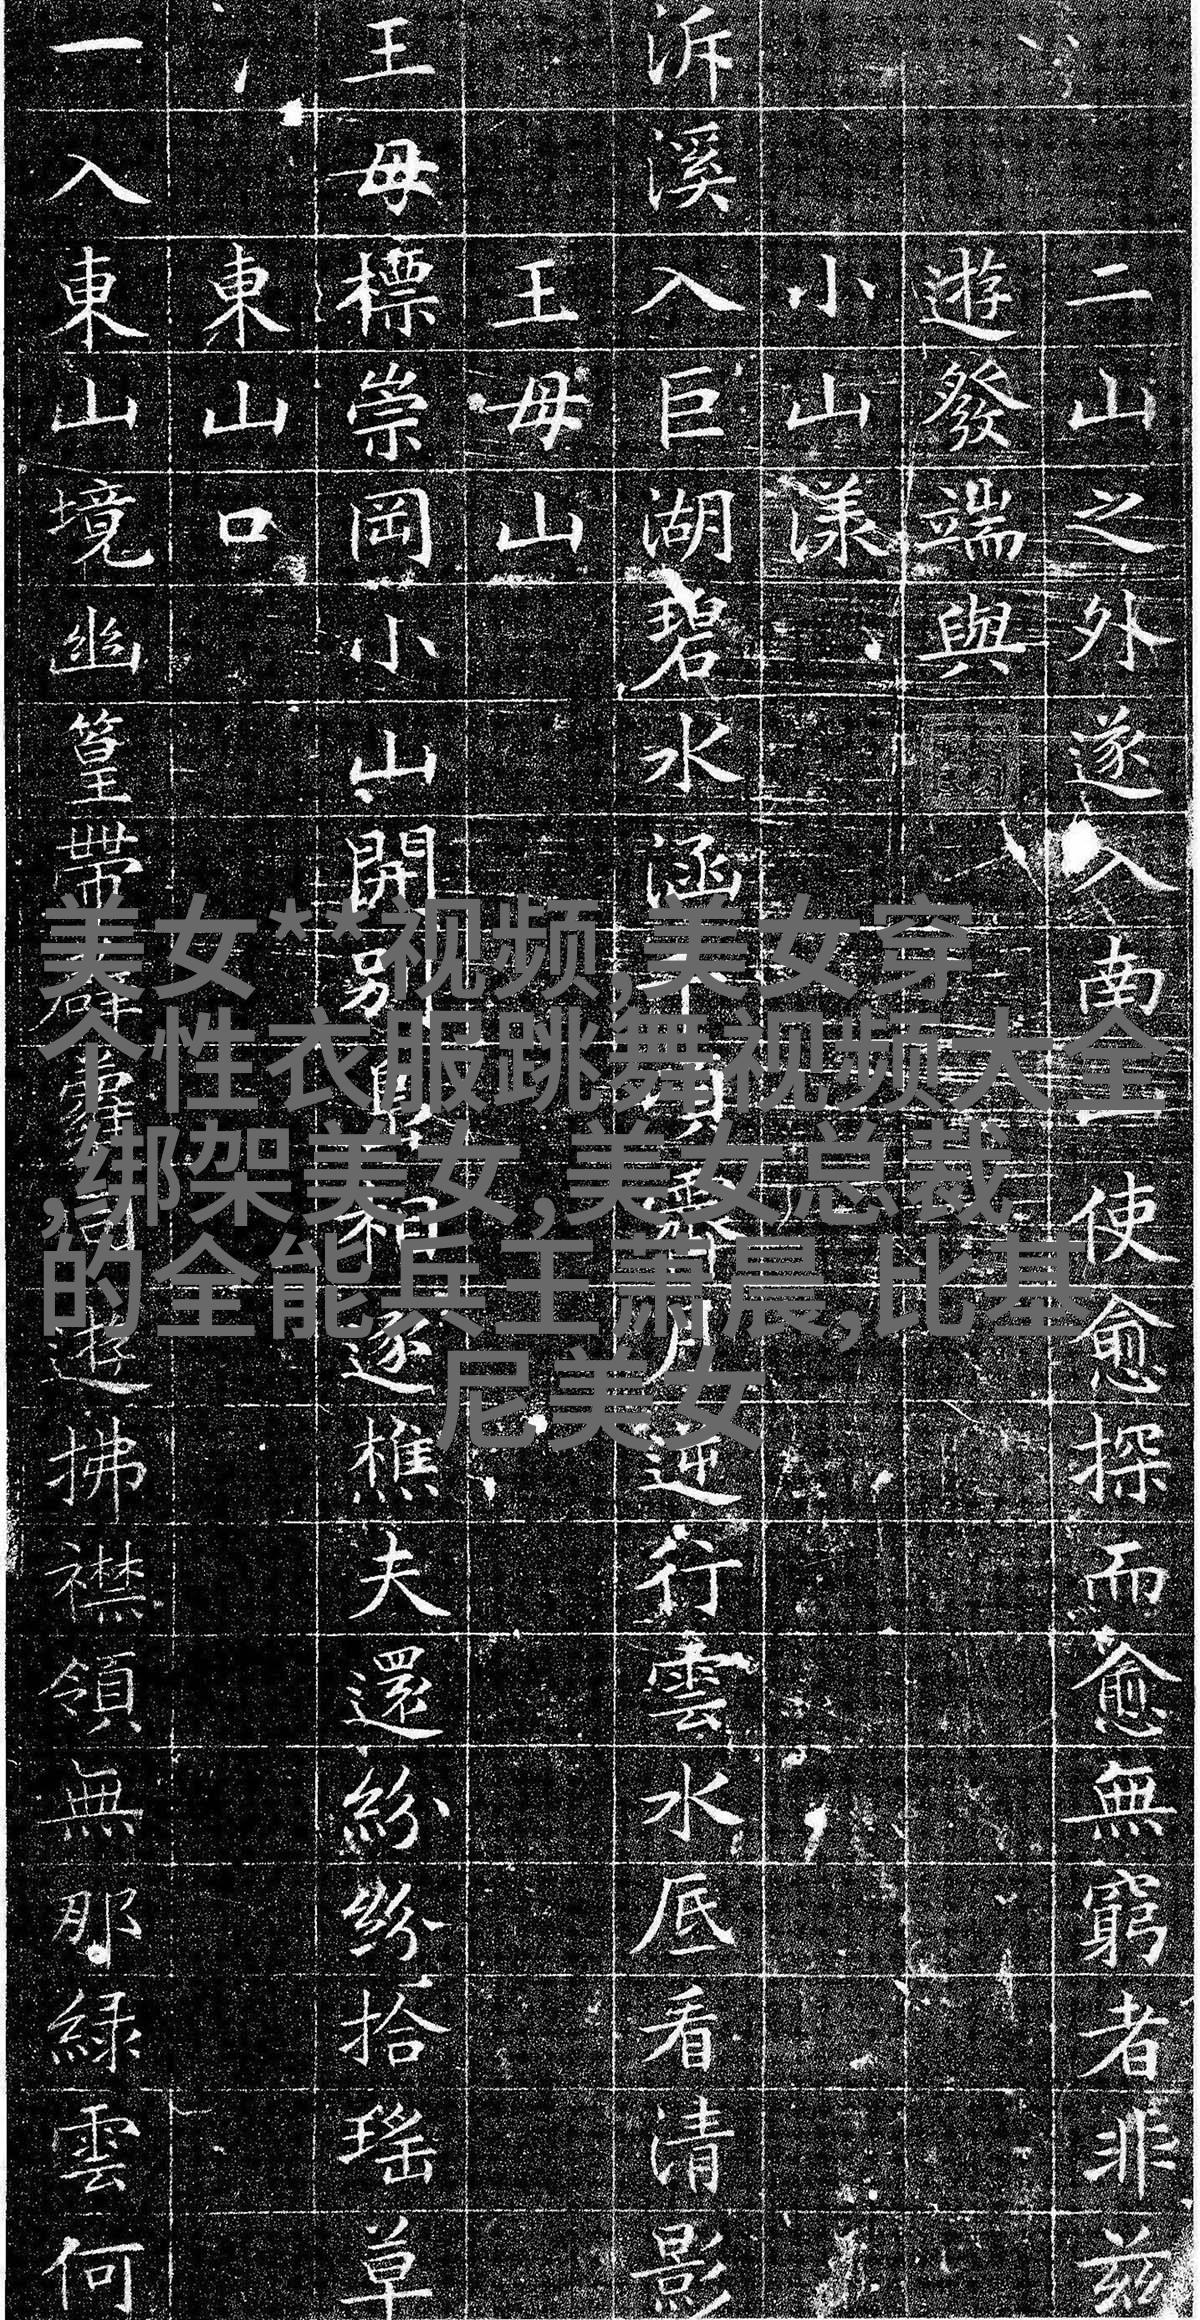 二山之外遂入南使愈探而愈無窮者非茲
遊發端與
小山漾
泝溪入巨湖碧水涵千頃霽月逆行雲水底看清影
王母山
王母標崇岡小山開別相逐樵夫還紛紛拾瑤草
東山口
一入東山境幽篁帶薜同遊拂襟領無那綠雲何
美女**视频,美女穿
个性衣服跳舞视频大全
,绑架美女,美女总裁
的全能兵王萧晨,比基
尼美女